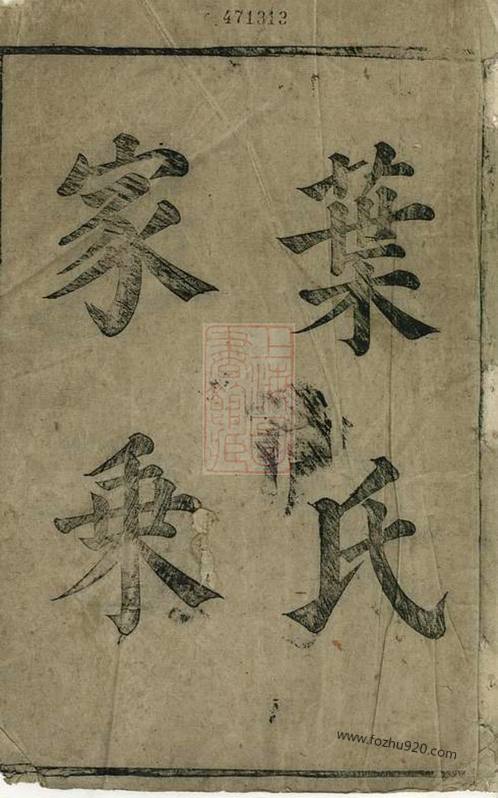 471313
葉氏
家乘
www.fozhu920.com